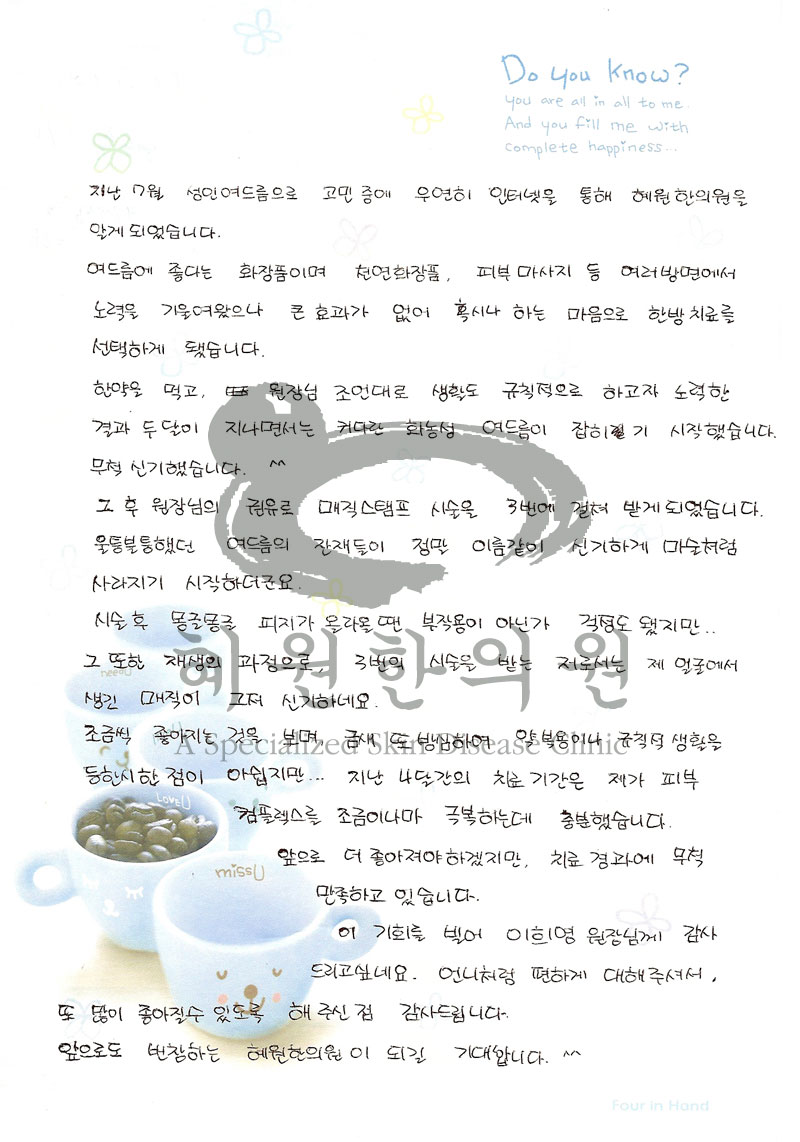 Do you know?
you are all in all to me.
And you fill me with
complete happiness...
지난 7월 성인여드름으로 고민 중에 우연히 인터넷을 통해 혜원한의원을
알게 되었습니다.
여드름에 좋다는 화장품이며 천연화장품, 피부 마사지 등 여러방면에서
노력을 기울여왔으나 큰 효과가 없어 혹시나 하는 마음으로 한방치료를
선택하게 됐습니다.
한약을 먹고, 원장님 조언대로 생활도 규칙적으로 하고자 노력한
결과 두달이 지나면서는 커다란 화농성 여드름이 잡히기 시작했습니다.
무척 신기했습니다. ^^
그 후 원장님의 권유로 매직스탬프 시술을 3번에 걸쳐 받게되었습니다.
울퉁불퉁했던 여드름의 잔재들이 정말 이름같이 신기하게 마술처럼
사라지기 시작하더군요.
시술 후 몽글몽글 피지가 올라올 땐 부작용이 아닌가 걱정도 됐지만..
그 또한 재생의 과정으로, 3번의 시술을 받는 저로서는 제 얼굴에서
생긴 매직이 그저 신기하네요.
조금씩 좋아지는 것을 보며 금새 또 방심하여 약복용이나 규칙적 생활을
등한시한 점이 아쉽지만... 지난 4달간의 치료기간은 제가 피부
컴플렉스를 조금이나마 극복하는데 충분했습니다.
앞으로 더 좋아져야하겠지만, 치료 경과에 무척
만족하고 있습니다.
이 기회를 빌어 이희영 원장님께 감사
드리고싶네요. 언니처럼 편하게 대해주셔서,
또 많이 좋아질수 있도록 해 주신 점 감사드립니다.
앞으로도 번창하는 혜원한의원이 되길 기대합니다. ^^
혜원한의원
A Specialized Skin Disease Clinic
need U
LOVE U
miss U
Four in Hand